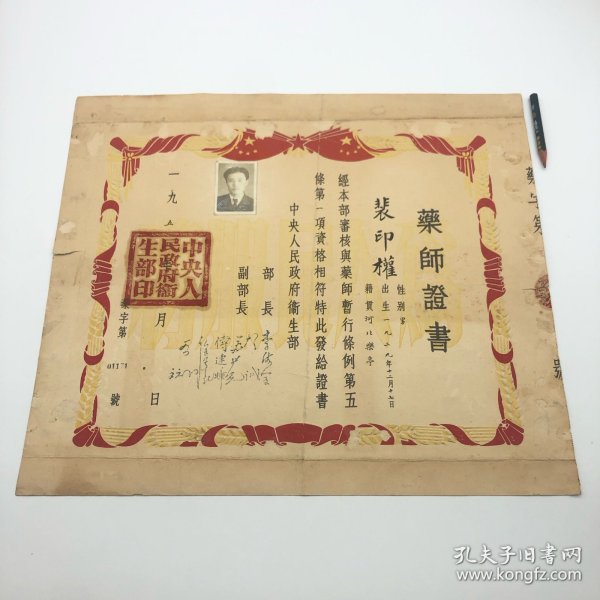 藥師證書
裴印權
性別 男
出生一九二九年十二月十七日
籍貫河北樂亭
經本部審核與藥師暫行條例第五
條第一項資格相符特此發給證書
中央人民政府衞生部
部長
李德全
副部長
中央人
民政府衞
生部印
一九五
月
日
字第
號
藥字第
號
孔夫子旧书网
www.kongfz.com